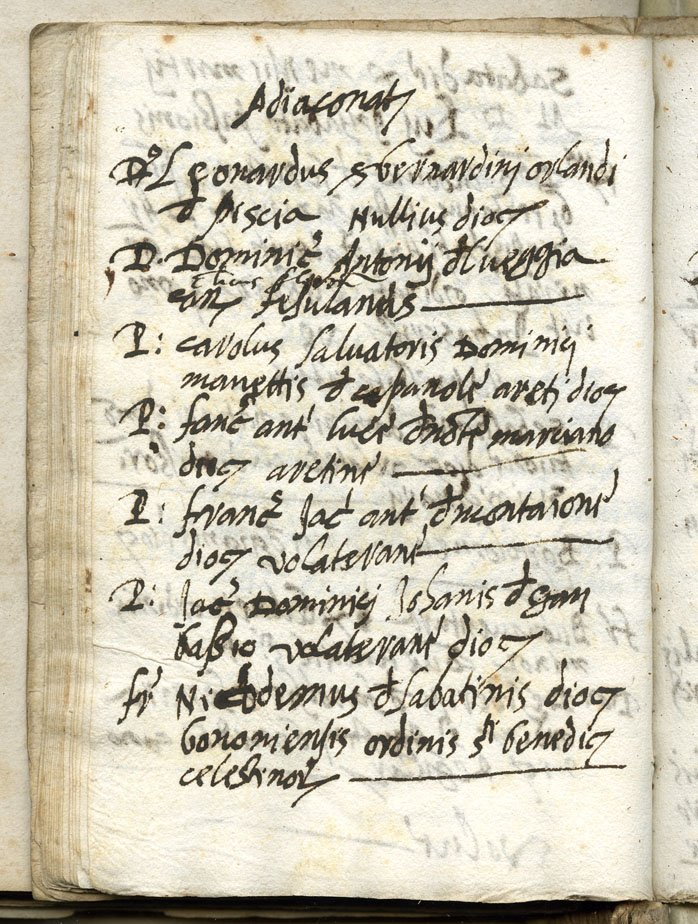 Adiaconat
Do Leonardus s bernardinj orlandi
d piscia Nullius dioc
D. Dominic Antonij d lueggia
can fesulanus
P: carolus salvatoris Dominici
manettis d espanole areti dioc
P: ant luce marciano
dioc aretine
P: franc Jac ant d montaione
dioc volaterane
P: Jac Dominici Johanis d gan
bassio volaterane dioc
fr Nicodemus d sabatinis dioc
bononiensis ordinis sti benedic
celestinor